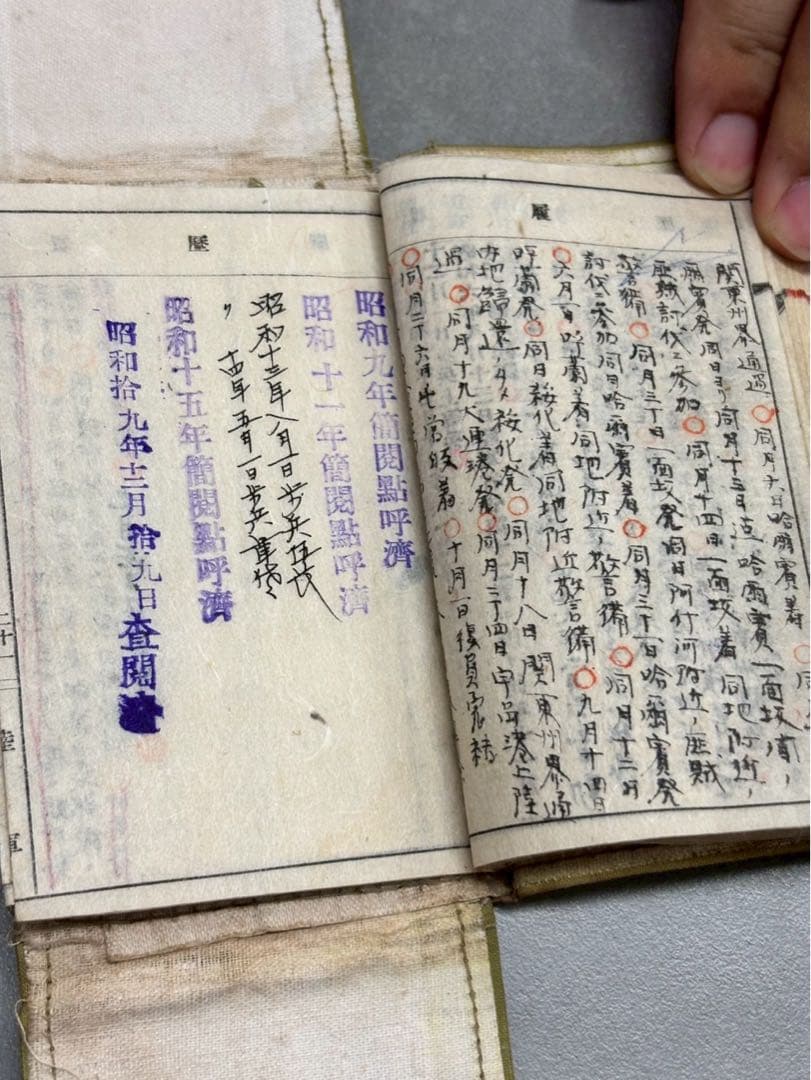 履
関東州界通過〇同月六日哈爾賓着〇同
爾賓発同日ヨリ同月十三日迄哈爾賓一面坡間ノ
匪賊討伐ニ参加〇同月十四日一面坡着同地附近ノ
警備〇同月三十日一面坡発同日阿什河附近ノ匪賊
討伐ニ参加同日哈爾賓着〇同月三十一日哈爾賓発
〇六月一日呼蘭着同地附近ノ警備〇同月十二日
呼蘭発〇同日綏化着同地附近警備〇九月十四日
内地歸還ノタメ綏化発〇同月十八日関東州界通
過〇同月十九大連港発〇同月二十四日宇品港上陸
〇同月二十六日屯営帰着〇十月一日復員完結
歴
昭和九年簡閲點呼濟
昭和十一年簡閲點呼濟
昭和十三年八月一日歩兵伍長
〃十四年五月一日歩兵軍曹
昭和十五年簡閲點呼濟
昭和拾九年十二月拾九日査閲濟
二十一
陸軍